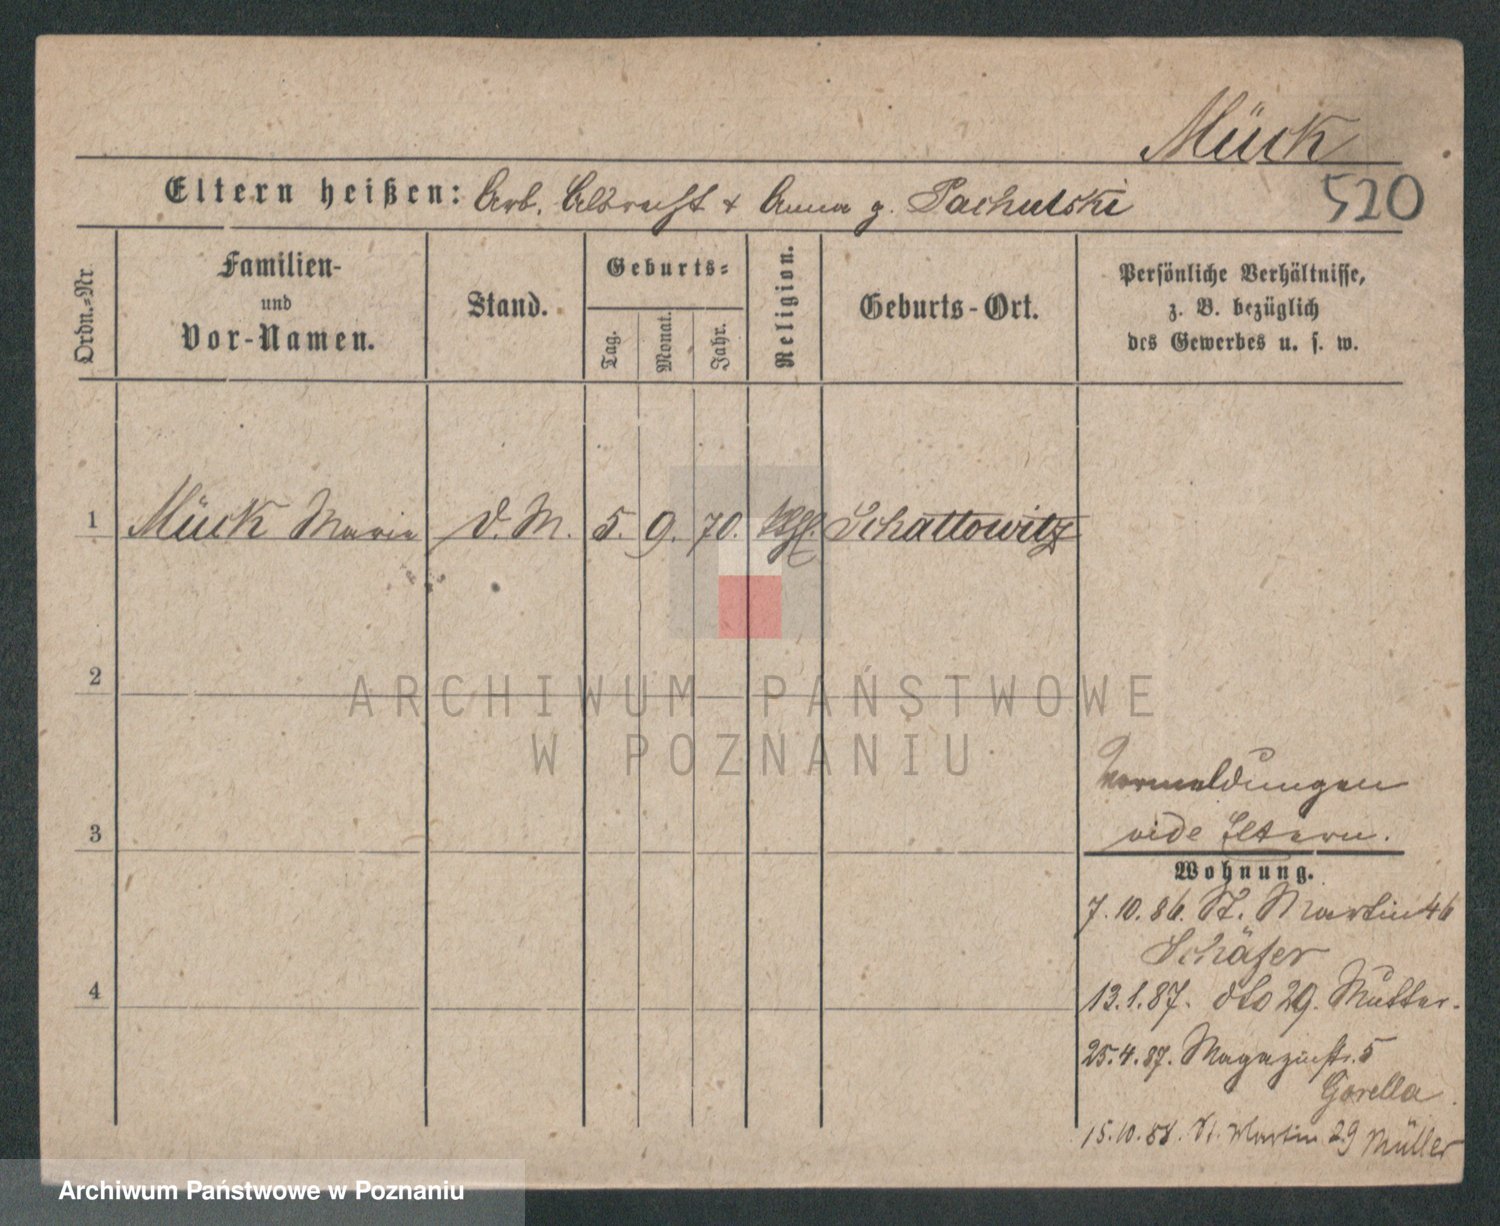 Mück
520
Eltern heißen: Arb. Albrecht + Anna g. Pachulski
Ordn.-Nr.
Familien-
und
Vor-Namen.
Stand.
Geburts-
Tag.
Monat.
Jahr.
Religion.
Geburts-Ort.
Persönliche Verhältnisse,
z. B. bezüglich
des Gewerbes u. s. w.
1 Mück Marie d. M. 5. 9. 70. Schattowitz
2
ARCHIWUM PAŃSTWOWE
W POZNANIU
3
4
Vormeldungen
vide Eltern.
Wohnung.
7.10.86. St. Martin 46
Schäfer
13.1.87. dto 29. Mutter.
25.4.87. Magazinstr. 5
Gorella.
15.10.88. St. Martin 29 Müller
Archiwum Państwowe w Poznaniu